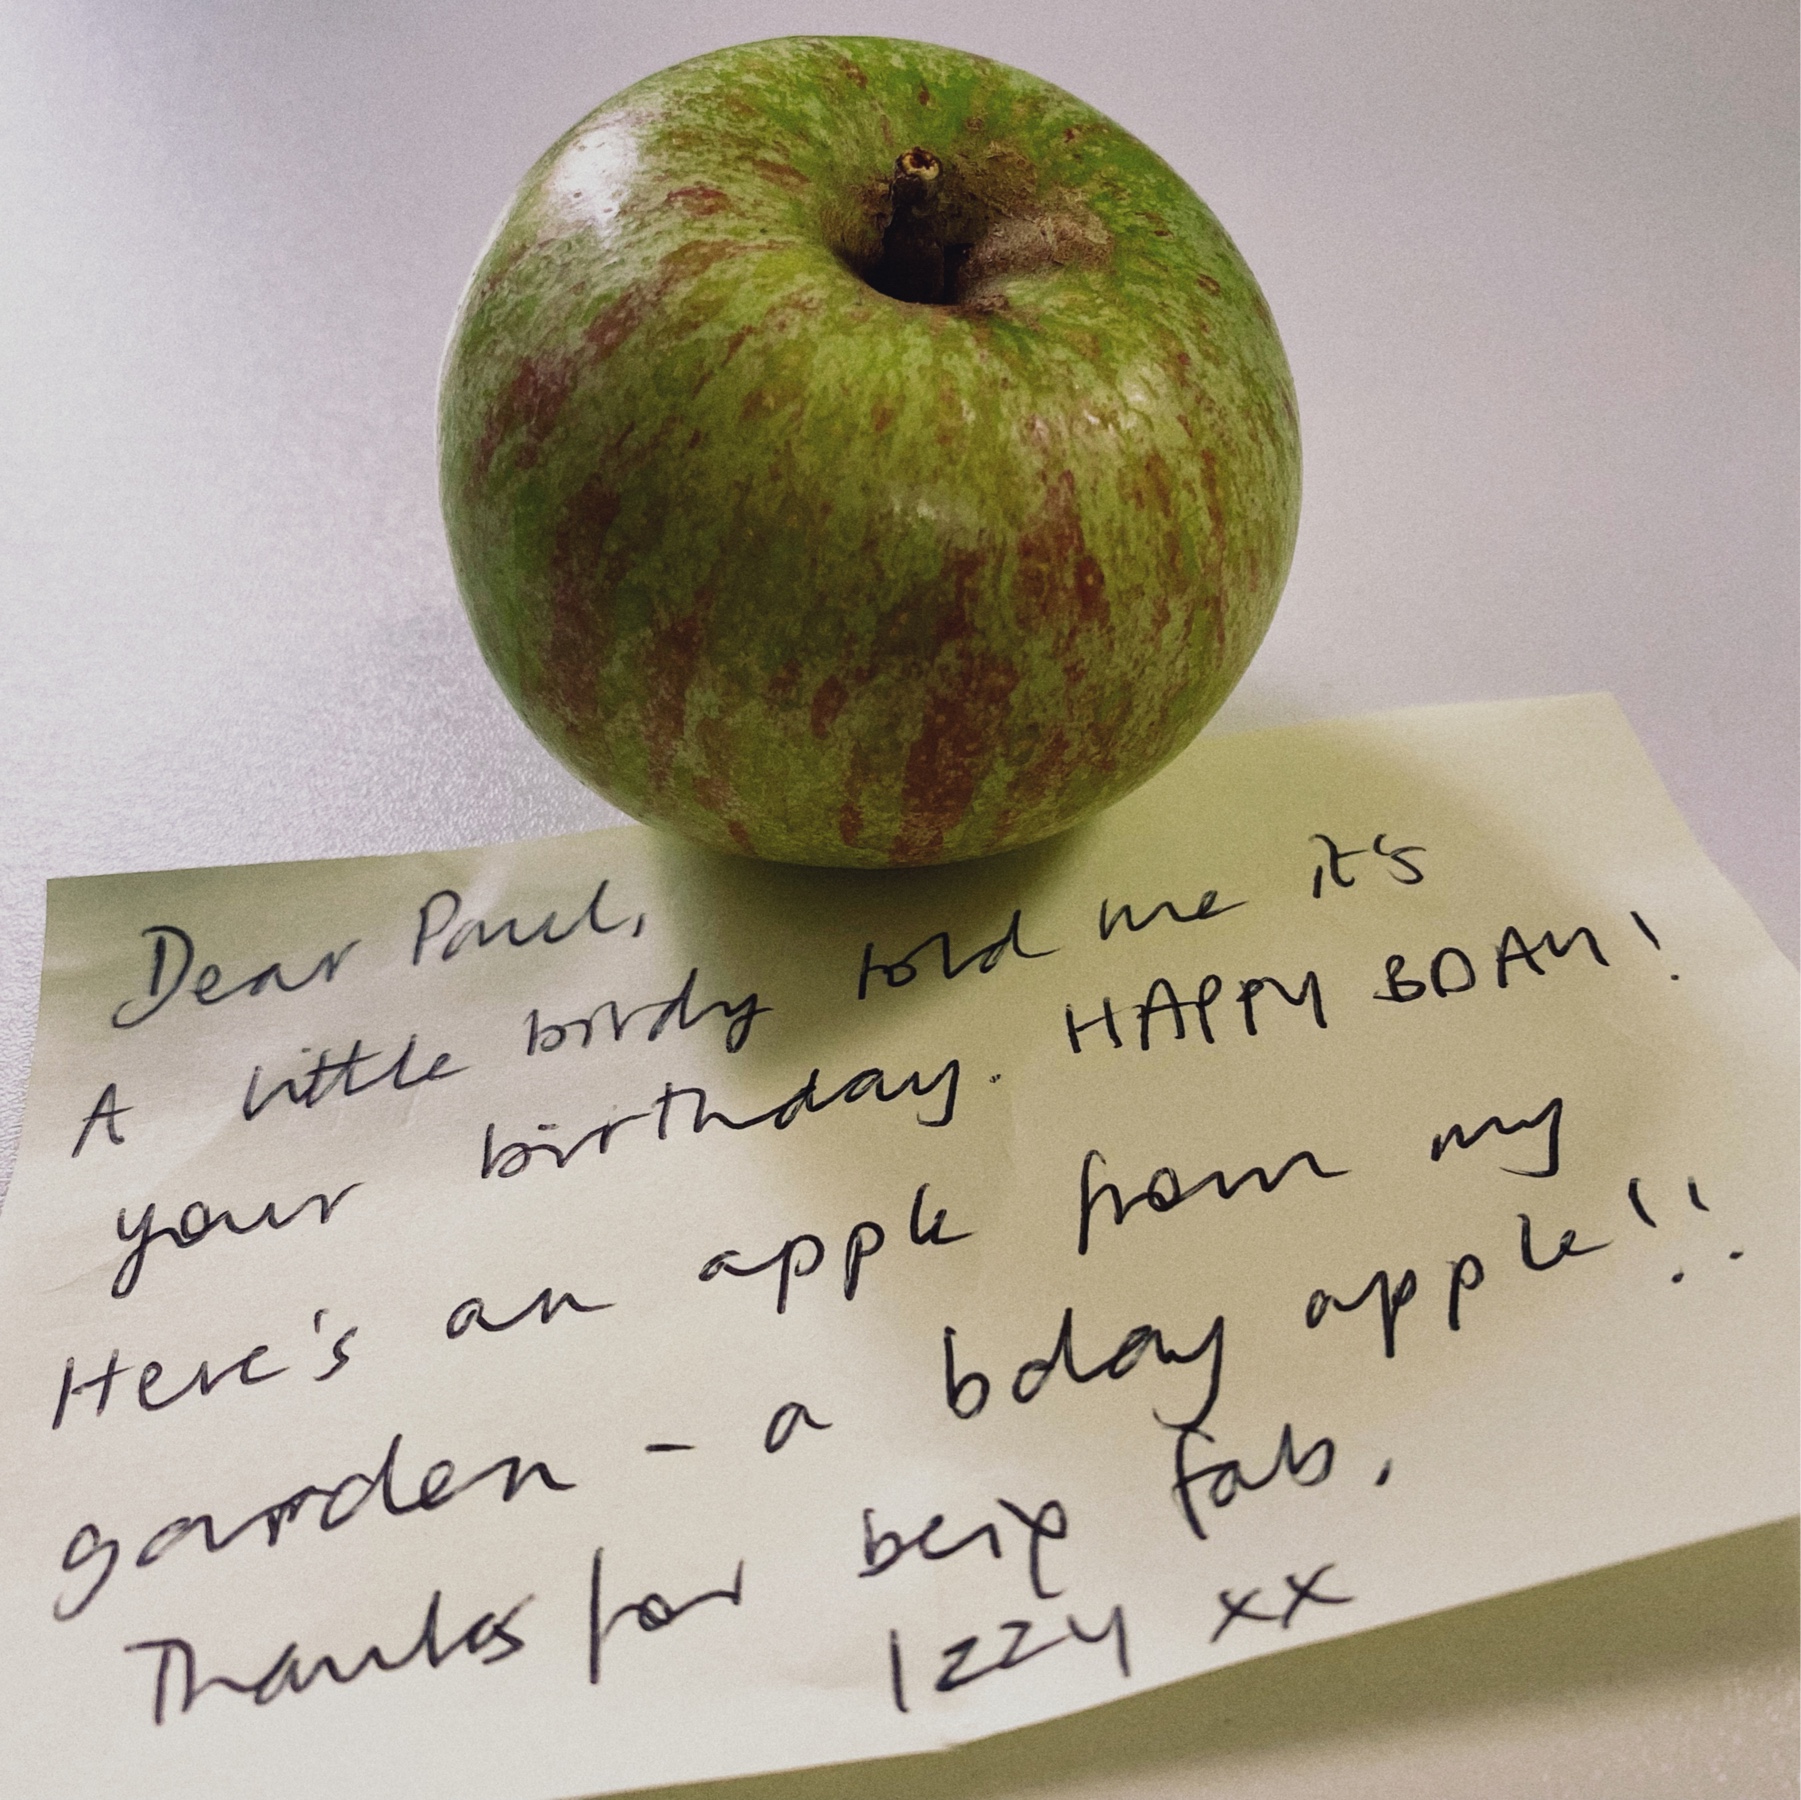 Dear Paul,
A little birdy told me it's
your birthday. HAPPY BDAY!
Here's an apple from my
garden - a bday apple!!
Thanks for being fab.
Izzy xx